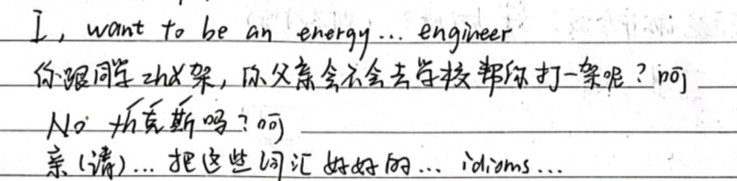 I, want to be an energy... engineer
你跟同学zha架，你父亲会不会去学校帮你打一架呢？呵
No 斯吗？呵
亲(请)... 把这些词汇好好的... idioms...